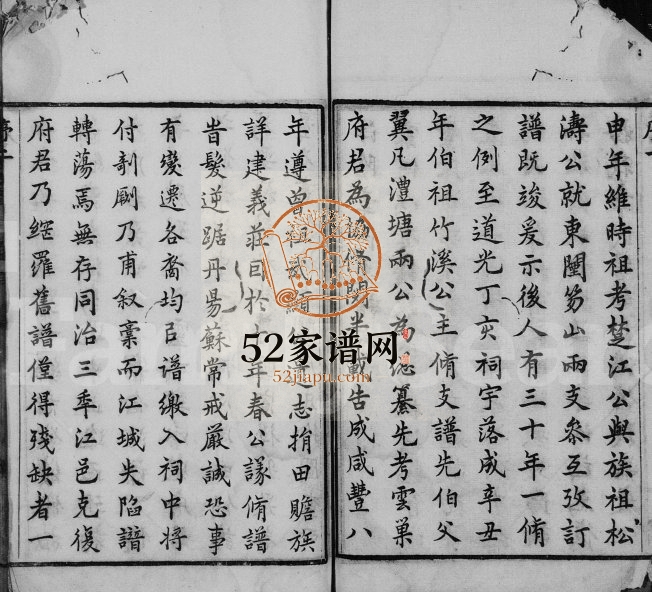 申年維時祖考楚江公與族祖松
濤公就東圍笏山兩支叅互攷訂
譜既竣爰示後人有三十年一脩
之例至道光丁亥祠宇落成辛丑
年伯祖竹溪公主脩支譜先伯父
翼凡澧塘兩公為總纂先考雲巢
府君為協脩閱半載告成咸豐八
年遵曾祖武顯公遺志捐田贍族
詳建義莊曰於十年春公議脩譜
昔髮逆踞丹昜蘇常戒嚴誠恐事
有變遷各裔均㠯谱繳入祠中将
付剞劂乃甫叙稾而江城失陷譜
轉蕩焉無存同治三年江邑克復
府君乃網羅舊譜僅得殘缺者一
52家谱网
52jiapu.com